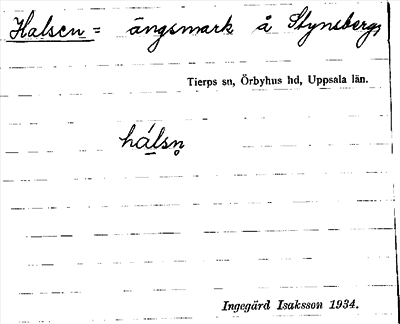 Halsen = ängsmark å Stynsberg,
Tierps sn, Örbyhus hd, Uppsala län.
hálsn̥
Ingegärd Isaksson 1934.